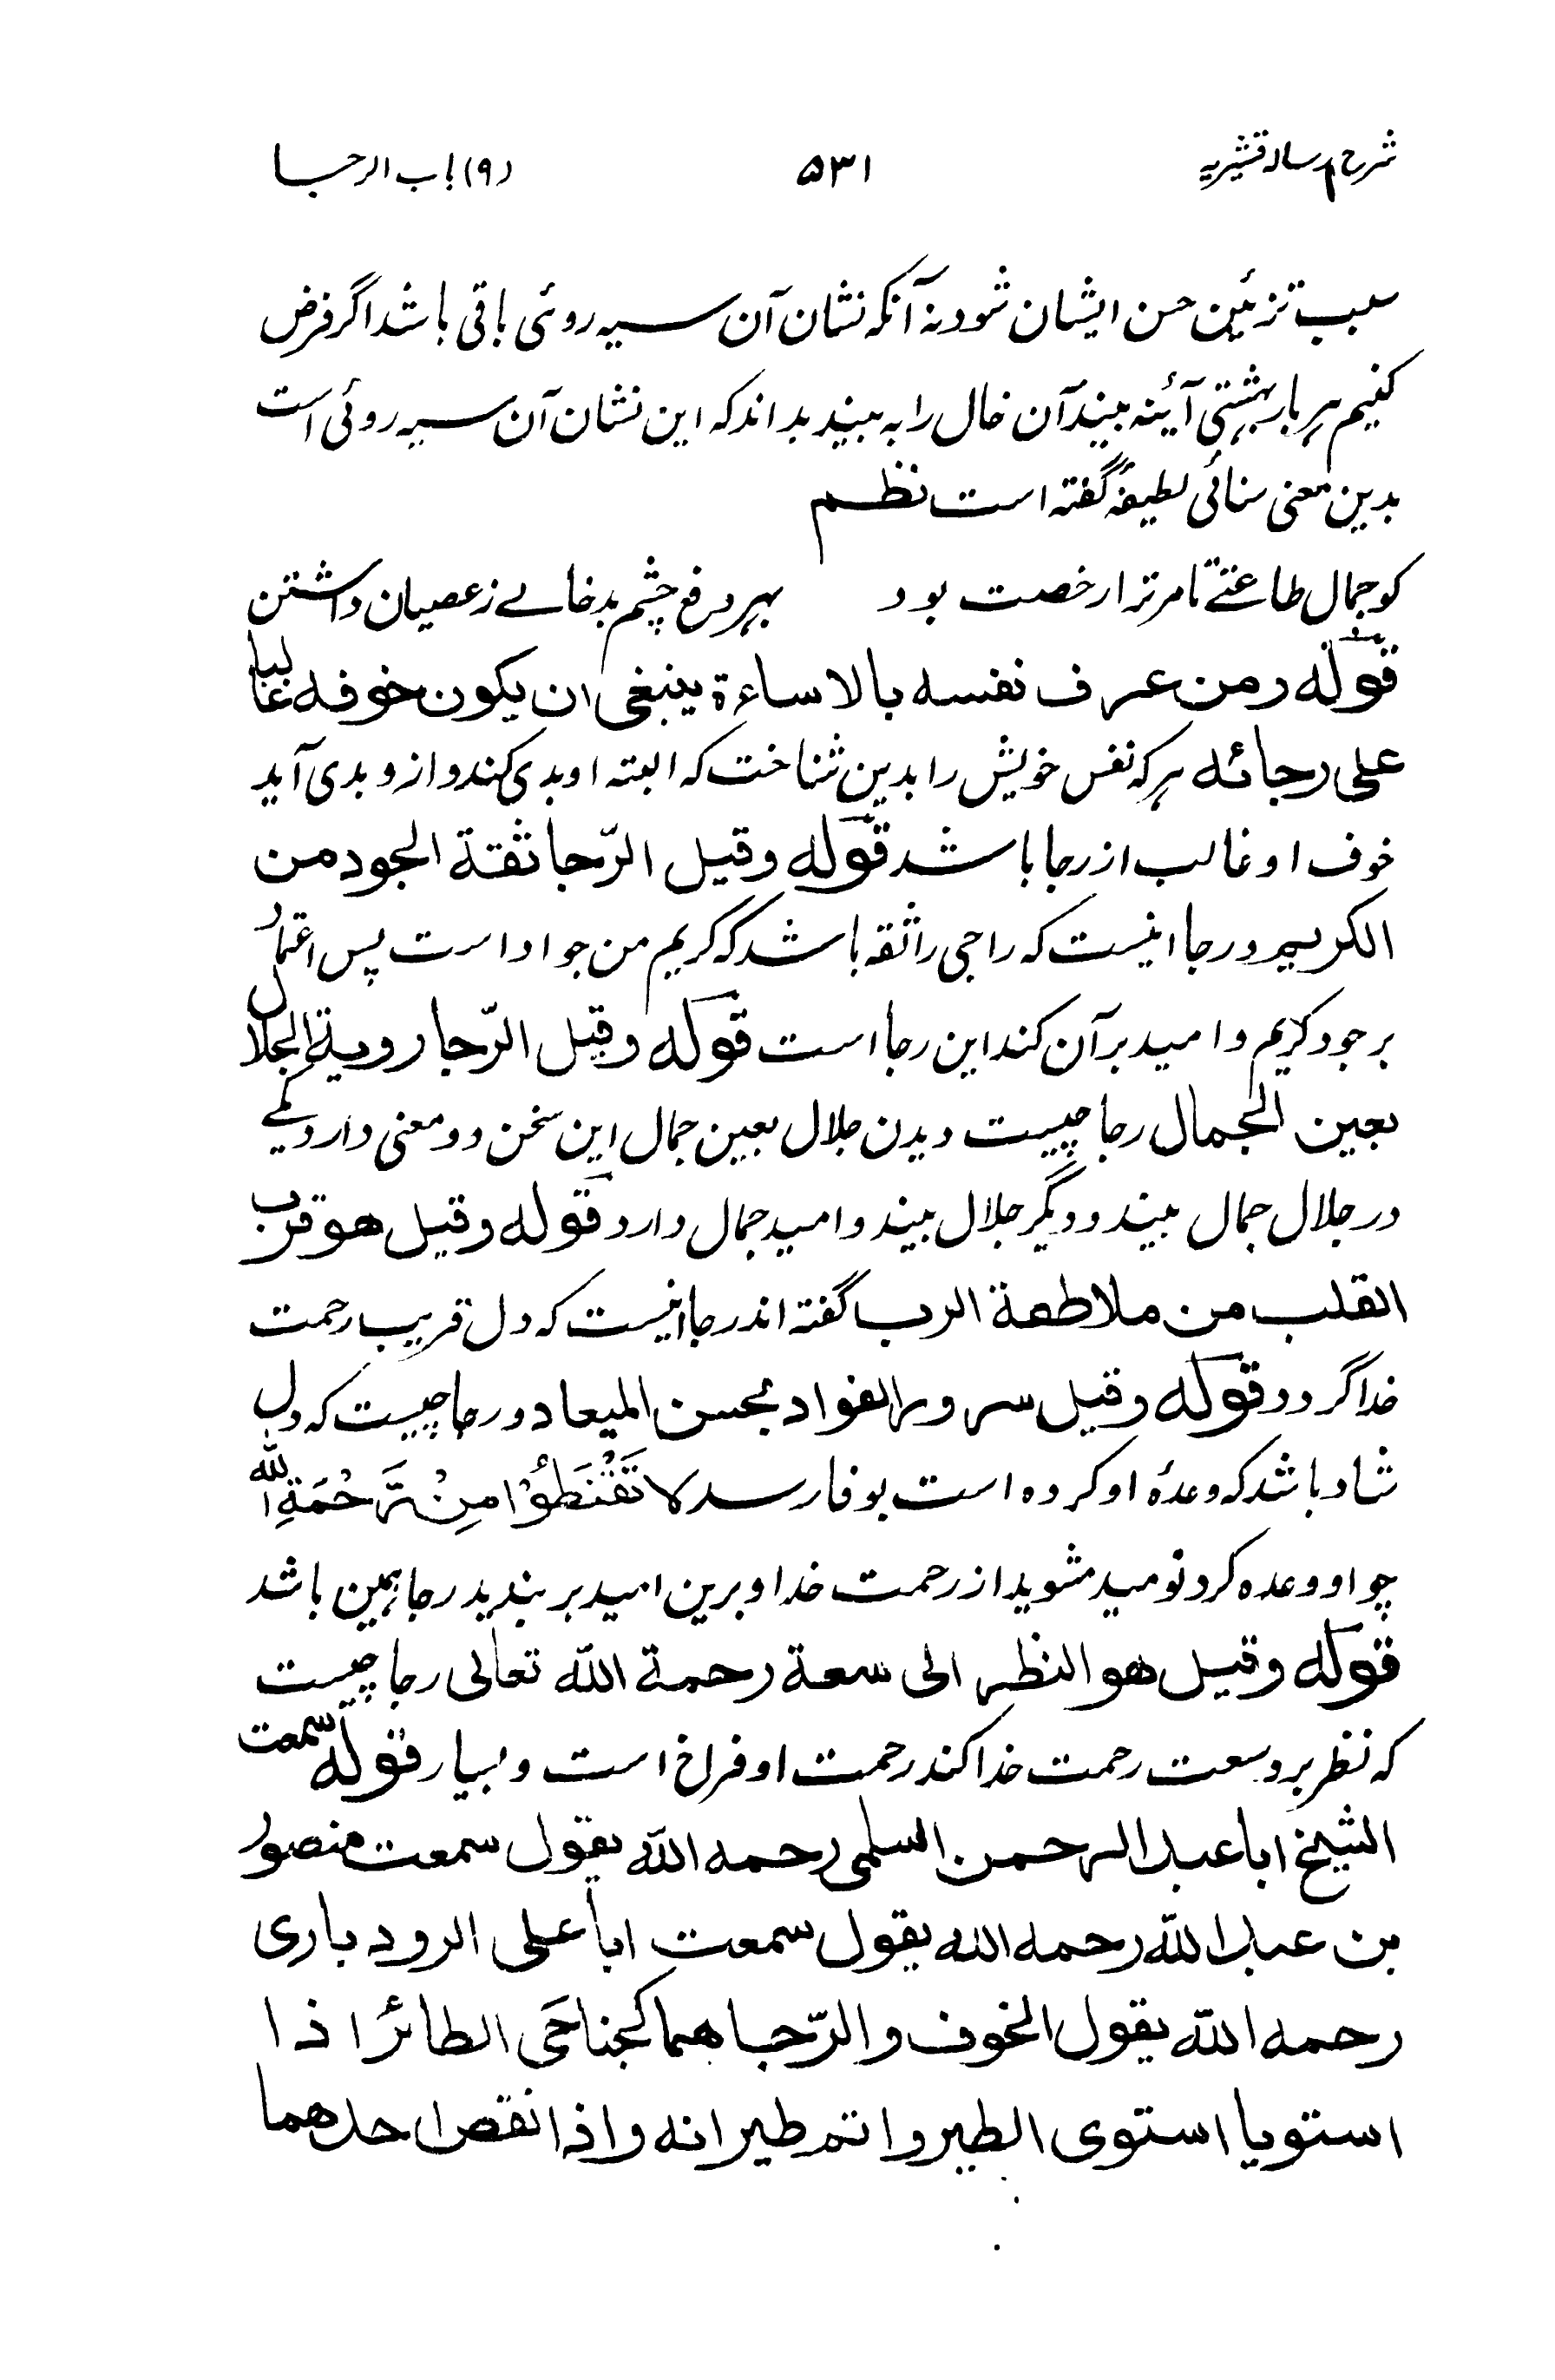 شرح رسالہ قشیریہ ۵۳۱ (۹) باب الرجا
سبب تزئین حسن ایشان شود نہ آنکہ نشان آن سیہ روئی باقی باشد اگر فرض
کنیم ہر بار بہشتی آئینہ بیند آن خال را بہ بیند بداند کہ این نشان آن سیہ روئی است
بدین معنی سنائی لطیفہ گفتہ است نظم
کو جمال طاعتے تا مر ترا رخصت بود بہر دفع چشم بد خالے ز عصیان داشتن
قولہ ومن عرف نفسه بالاساءة ينبغى ان يكون خوفه غالبا
على رجائه ہر کہ نفس خویش را بدین شناخت کہ البتہ او بدی کند و از و بدی آید
خوف او غالب از رجا باشد قوله وقيل الرّجا ثقة الجود من
الكريم ورجا اینست کہ راجی را ثقہ باشد کہ کریم من جواد است پس اعتماد
بر جود کریم و امید بر آن کند این رجا است قوله وقيل الرّجا روية الجلال
بعين الجمال رجا چیست دیدن جلال بعین جمال این سخن دو معنی دارد یکے
در جلال جمال بیند و دیگر جلال بیند و امید جمال دارد قوله وقيل هو قرب
القلب من ملاطفة الرب گفتہ اند رجا اینست کہ دل قریب رحمت
خدا گردد قوله وقيل سرور الفواد بحسن الميعاد و رجا چیست کہ دل
شاد باشد کہ وعدۂ او کردہ است بوفا رسد لا تَقْنَطُوْا مِنْ رَّحْمَةِ الله
چو او وعدہ کرد نومید مشوید از رحمت خدا و برین امید بر بندید رجا ہمین باشد
قوله وقيل هو النظر الى سعة رحمة الله تعالى رجا چیست
کہ نظر بر وسعت رحمت خدا کند رحمت او فراخ است و بسیار قوله سمعت
الشيخ ابا عبد الرحمن السلمى رحمه الله يقول سمعت منصور
بن عبد الله رحمه الله يقول سمعت ابا على الرودبارى
رحمه الله يقول الخوف والرّجا هما كجناحَى الطائر اذا
استويا استوى الطير واتم طيرانه واذا نقص احدهما